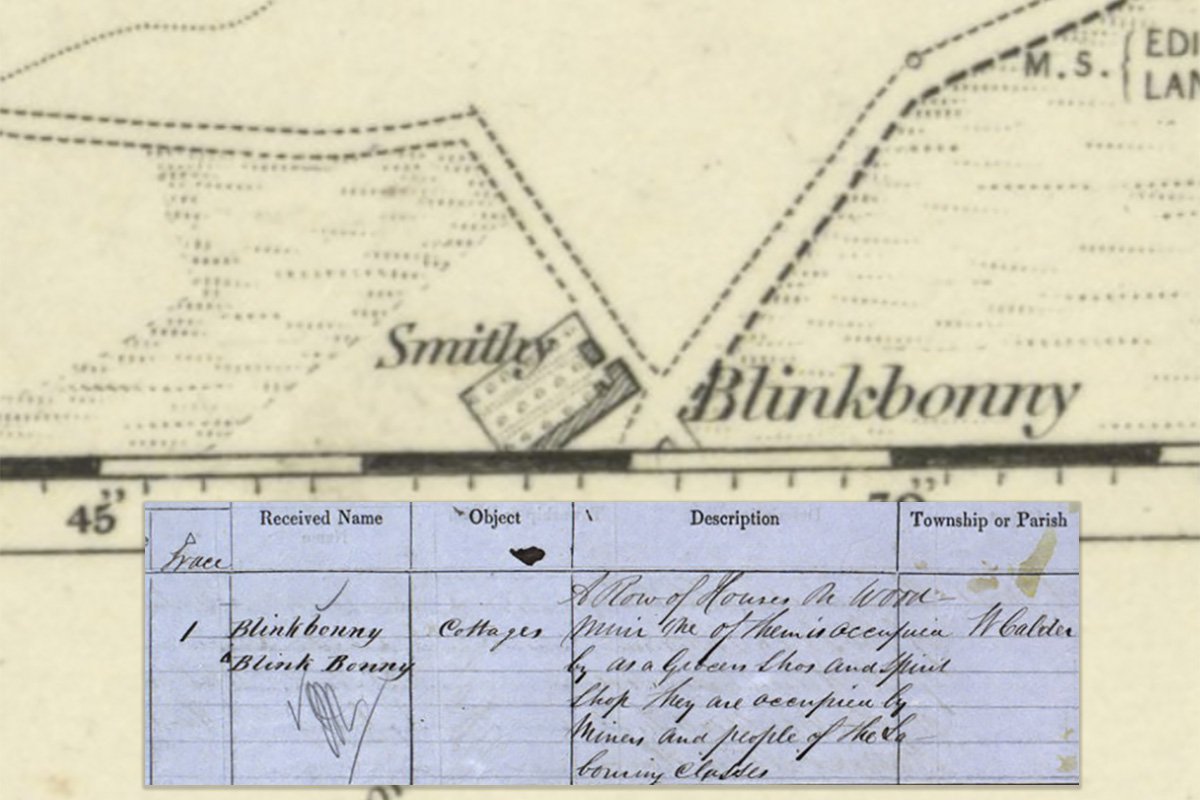 M.S. { EDI
LAN
Smithy
Blinkbonny
45"
Received Name Object Description Township or Parish
Trace
A Row of Houses On Wood
1 Blinkbonny Cottages Muir One of them is occupied W Calder
Blink Bonny by as a Grocers Shop and Spirit
Shop They are occupied by
Miners and people of the La
bouring Classes